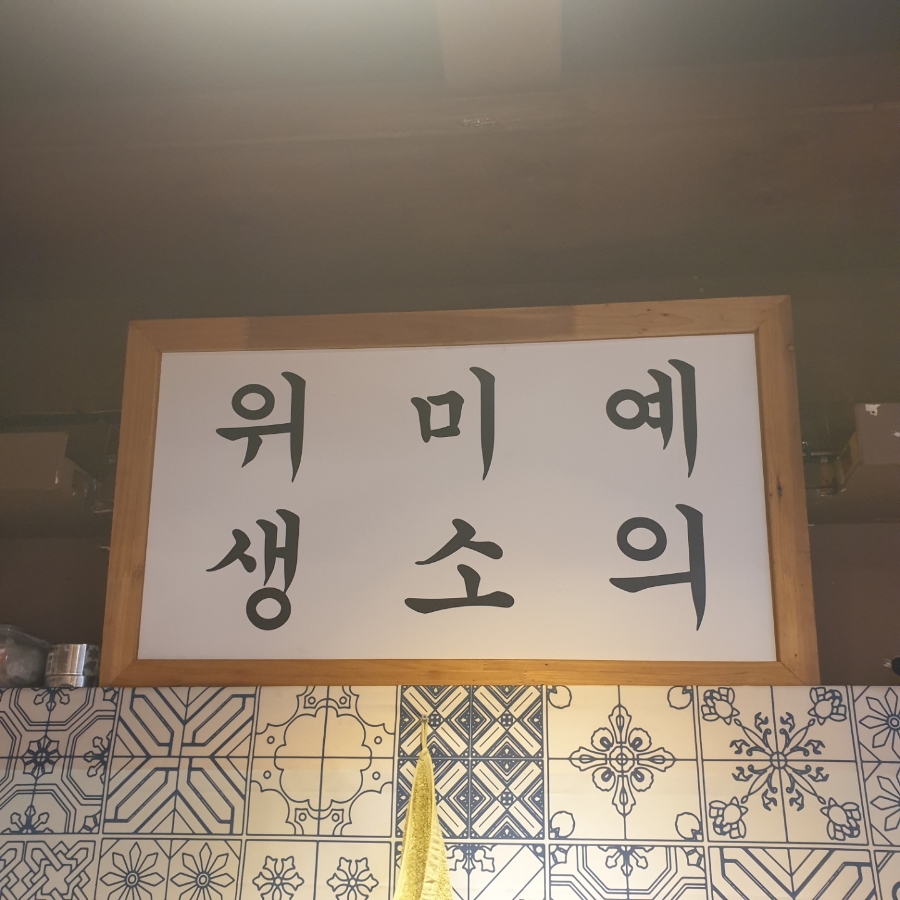 예의
미소
위생